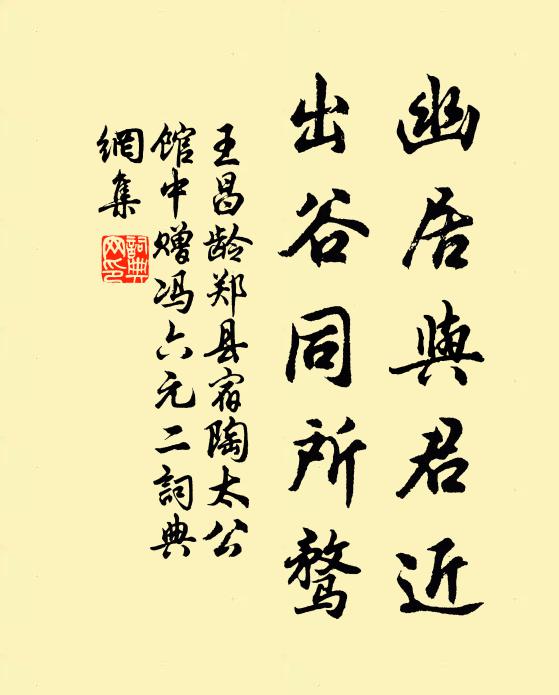 幽居與君近
出谷同所骛
王昌龄郑县宿陶太公
馆中赠冯六元二詞典
網集
詞典網印